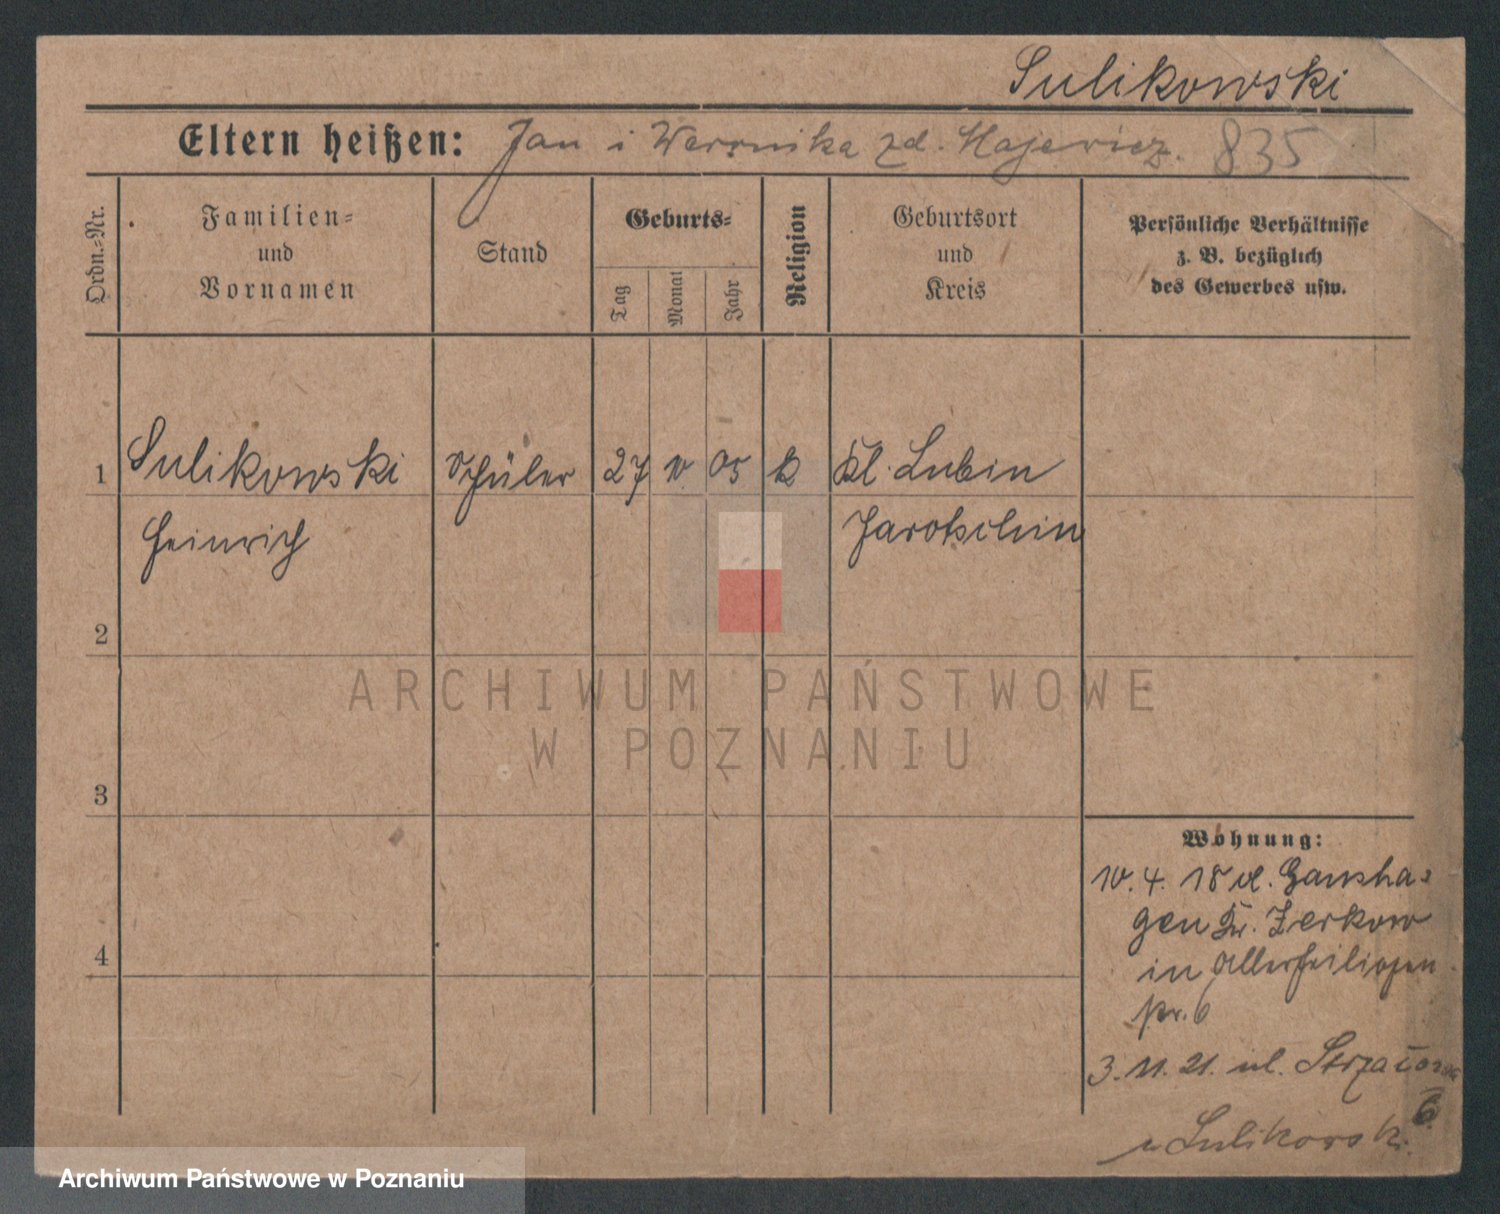 Sulikowski
Eltern heißen: Jan i Weronika zd. Majewicz. 835
Ordn.=Nr.
Familien=
und
Vornamen
Stand
Geburts=
Tag
Monat
Jahr
Religion
Geburtsort
und
Kreis
Persönliche Verhältnisse
z. B. bezüglich
des Gewerbes usw.
1 Sulikowski Schüler 27 10 05 k Kl. Lubin
Heinrich Jarotschin
2
3
4
Wohnung:
10. 4. 18 Hausha=
gen Kr. Zerkow
in Allerheiligen
str. 6
3. 11. 21. ul. Strzałowa
6
u Sulikowski.
ARCHIWUM PAŃSTWOWE
W POZNANIU
Archiwum Państwowe w Poznaniu